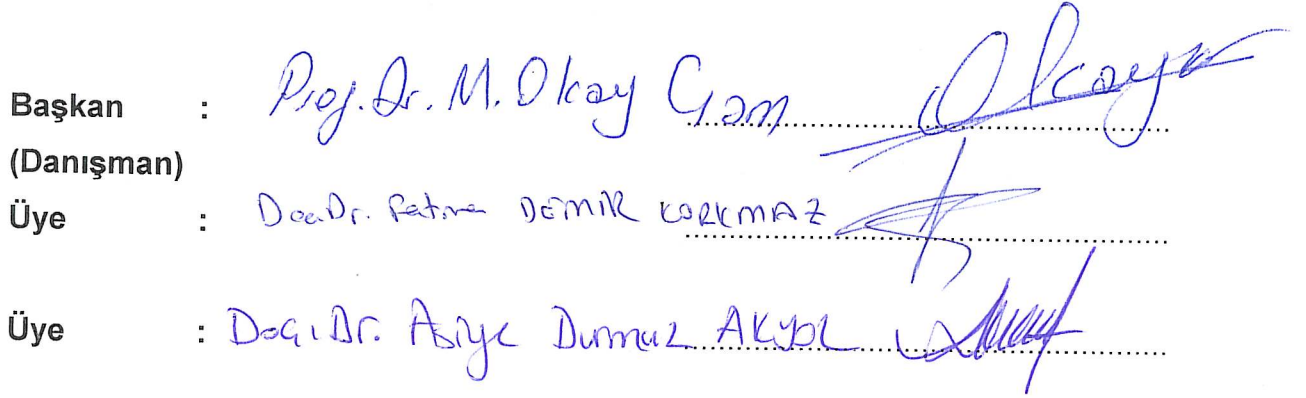 Başkan : Prof. Dr. M. Okay Çam
(Danışman)
Üye : Doç.Dr. Fatma DEMİR KORKMAZ
Üye : Doç.Dr. Asiye Durmaz AKYOL